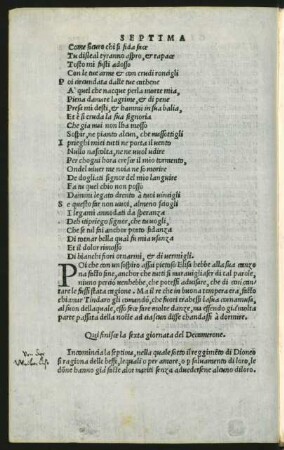 SEPTIMA
Come sicuro chi si fida face
Tu disleal tyranno aspro, et rapace
Tosto mi fusti adosso
Con le tue arme et con crudi roncigli
Poi circundata dalle tue cathene
A quel che nacque per la morte mia,
Piena d'amare lagrime, et di pene
Presa mi desti, et hammi in sua balia,
Et è si cruda la sua signoria
Che gia mai non l'ha mosso
Sospir, ne pianto alcun, che
I prieghi miei tutti ne porta il vento
Nullo n'ascolta, ne ne vuol udire
Per c'hogni hora cresce il mio tormento,
Onde'l viver m'è noia ne so morire
De dogliati signor del mio languire
Fa tu quel ch'io non posso
Dalmmi legato drento à tuoi vincigli
Se questo far non vuoi, almeno sciogli
I legami annodati da speranza
Deh ti priego signor, che tu vogli,
Che se'l fai anchor porto fidanza
Di tornar bella qual fu mia usanza
Et il dolor rimosso
Di bianchi fiori ornarmi, et di vermigli.
Poi che con un sospiro assai pieroso Elisa hebbe alla sua canzo
na fatto fine, anchor che tutti si maravigliasser di tal parole,
niuno perciò ve n'hebbe, che potesse advisare, che di cosi can
tare le fusse stata cagione. Ma il re che in buona tempera era, fatto
chiamar Tindaro gli comandò, che fuori trahesse la sua cornamusa,
al suon della quale, esso fece fare molte danze, ma essendo già molta
parte passata della notte ad ciascun disse ch'andasse à dormire.
Qui finisce la sesta giornata del Decamerone.
Incomincia la septima, nella quale sotto il reggimẽto di Dioneo
si ragiona delle beffe, lequali o per amore, o p salvamento di loro, le
dõne hanno già fatte a lor mariti senza advedersene alcuno di loro.